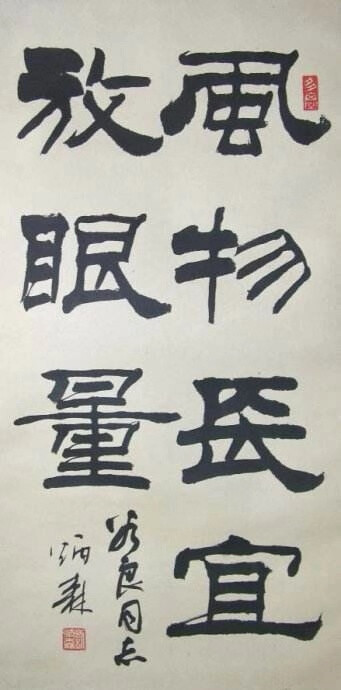 風物長宜
放眼量
良同志
炳森